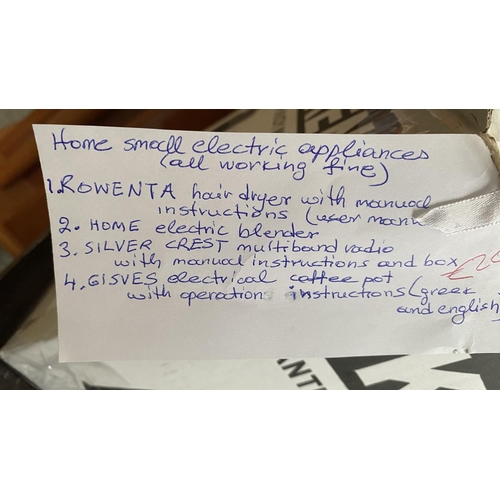 Home small electric appliances
(all working fine)
1. ROWENTA hair dryer with manual
instructions (user manu
2. HOME electric blender
3. SILVER CREST multiband radio
with manual instructions and box
4. GISVES electrical coffee pot
with operations instructions (greek
and english)
ANTI